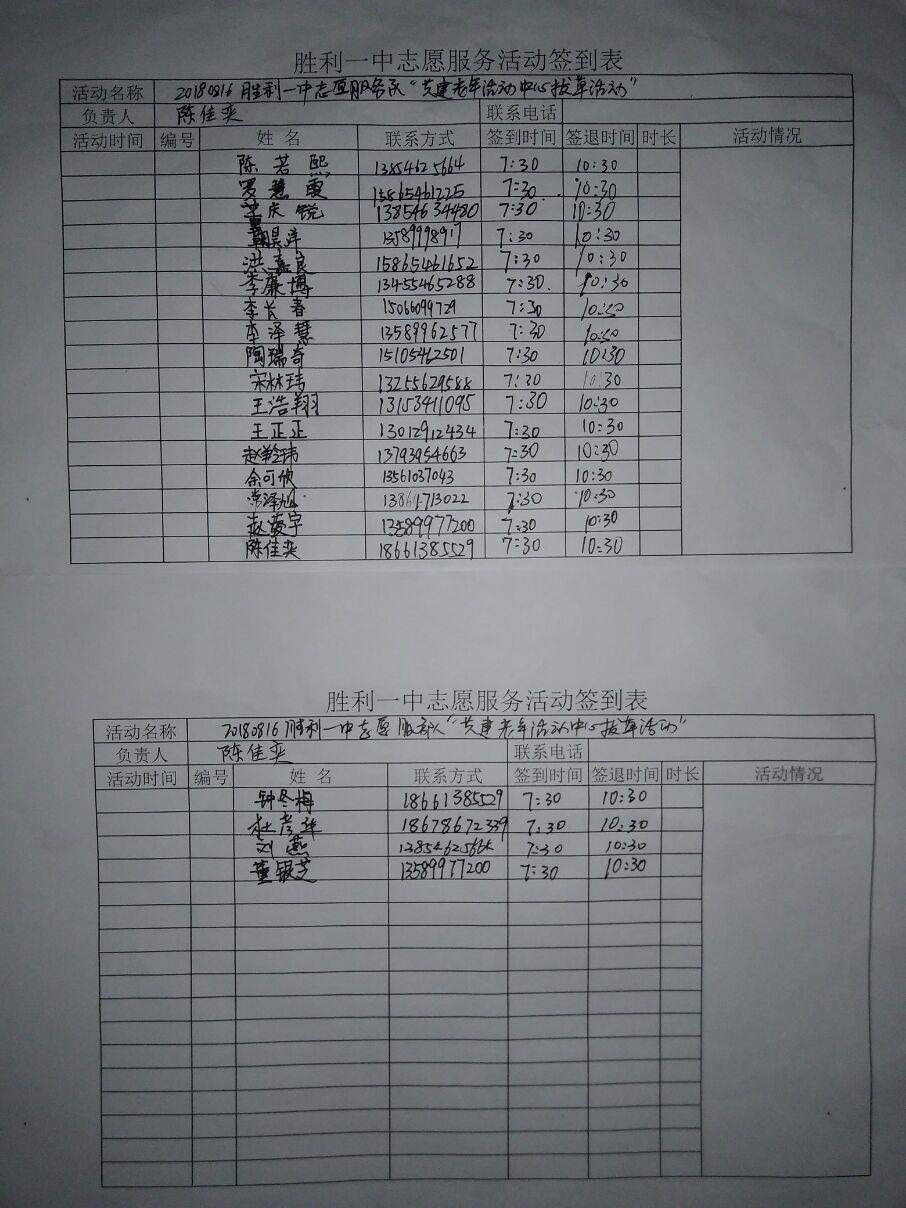 胜利一中志愿服务活动签到表
活动名称 20180816胜利一中志愿服务队"共建老年活动中心拔草活动"
负责人 陈佳奕 联系电话
活动时间 编号 姓名 联系方式 签到时间 签退时间 时长 活动情况
陈若熙 13854625664 7:30 10:30
罗慧霞 15865461225 7:30 10:30
庆锐 13854634480 7:30 10:30
昊洋 13589998917 7:30 10:30
洪嘉良 15865461652 7:30 10:30
李廉博 13455465288 7:30 10:30
李长春 15066099729 7:30 10:30
李泽慧 13589962577 7:30 10:30
陶瑞奇 15105462501 7:30 10:30
宋林玮 13255629588 7:30 10:30
王浩翔 13153411095 7:30 10:30
王正正 13012912434 7:30 10:30
赵玮 13793954663 7:30 10:30
余可欣 13561037043 7:30 10:30
常泽旭 13864713022 7:30 10:30
赵宇 13589977200 7:30 10:30
陈佳奕 18661385529 7:30 10:30
胜利一中志愿服务活动签到表
活动名称 20180816胜利一中志愿服务队"共建老年活动中心拔草活动"
负责人 陈佳奕 联系电话
活动时间 编号 姓名 联系方式 签到时间 签退时间 时长 活动情况
钟冬梅 18661385529 7:30 10:30
杜彦华 18678672339 7:30 10:30
刘燕 13854625664 7:30 10:30
董银芝 13589977200 7:30 10:30